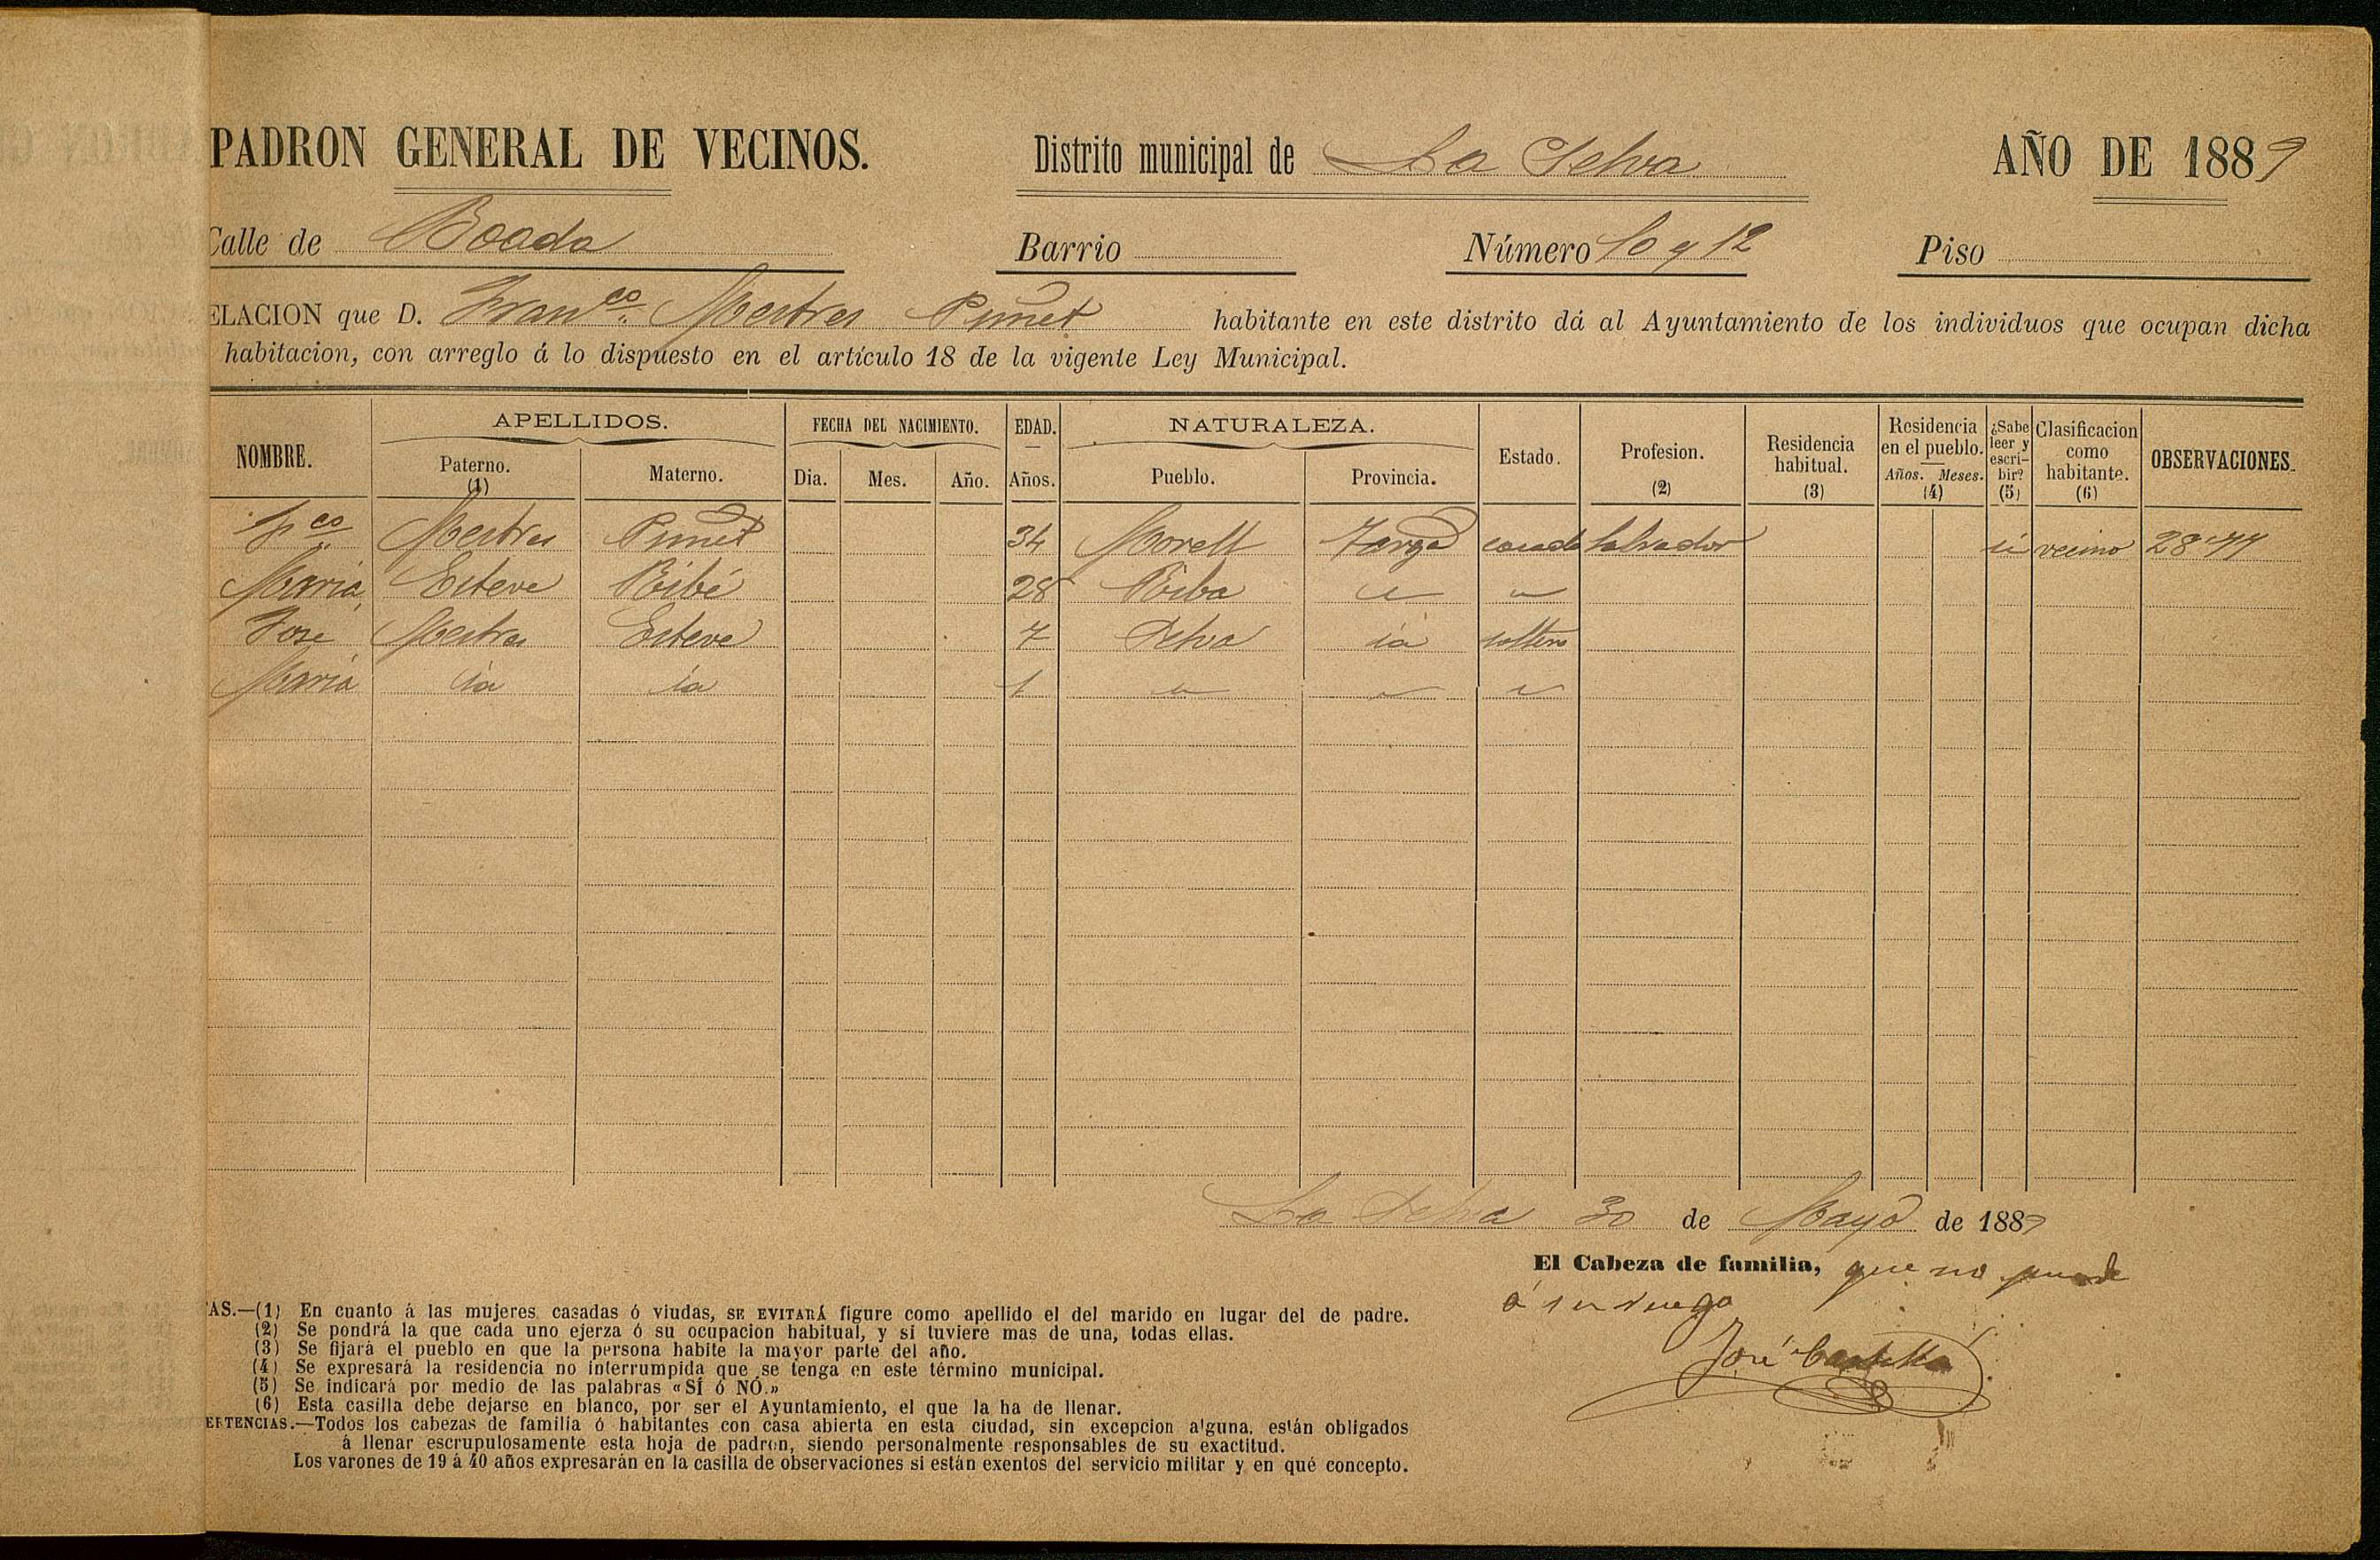 PADRON GENERAL DE VECINOS. Distrito municipal de La Selva AÑO DE 1889
Calle de Boada Barrio Número 10 y 12 Piso
ELACION que D. Franco. Mestres Punet habitante en este distrito dá al Ayuntamiento de los individuos que ocupan dicha
habitacion, con arreglo á lo dispuesto en el artículo 18 de la vigente Ley Municipal.
NOMBRE. APELLIDOS. Paterno. (1) Materno. FECHA DEL NACIMIENTO. Dia. Mes. Año. EDAD. Años. NATURALEZA. Pueblo. Provincia. Estado. Profesion. (2) Residencia habitual. (3) Residencia en el pueblo. Años. Meses. (4) ¿Sabe leer y escribir? (5) Clasificacion como habitante. (6) OBSERVACIONES.
Fco Mestres Punet 34 Morell Targa casado labrador si vecino 28'77
Maria Esteve Ribé 28 Riba " "
José Mestres Esteve 7 Selva ia soltero
Maria ia ia 1 " " "
La Selva 30 de Mayo de 1889
El Cabeza de familia, que no puede
á su ruego
José
AS.—(1) En cuanto á las mujeres casadas ó viudas, SE EVITARÁ figure como apellido el del marido en lugar del de padre.
(2) Se pondrá la que cada uno ejerza ó su ocupacion habitual, y si tuviere mas de una, todas ellas.
(3) Se fijará el pueblo en que la persona habite la mayor parte del año.
(4) Se expresará la residencia no interrumpida que se tenga en este término municipal.
(5) Se indicará por medio de las palabras «SÍ ó NÓ.»
(6) Esta casilla debe dejarse en blanco, por ser el Ayuntamiento, el que la ha de llenar.
ERTENCIAS.—Todos los cabezas de familia ó habitantes con casa abierta en esta ciudad, sin excepcion alguna, están obligados
á llenar escrupulosamente esta hoja de padron, siendo personalmente responsables de su exactitud.
Los varones de 19 á 40 años expresarán en la casilla de observaciones si están exentos del servicio militar y en qué concepto.